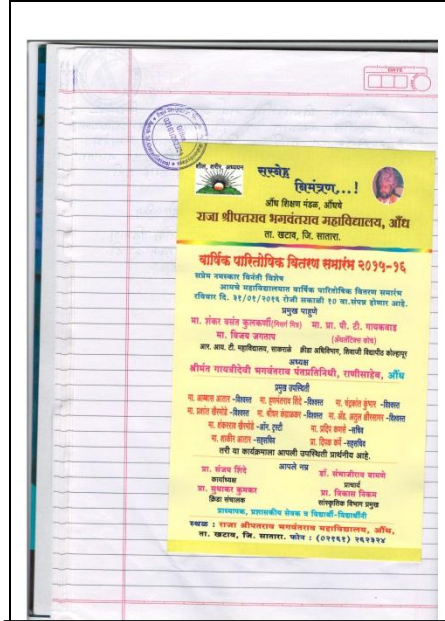 DATE
शील शरीर अध्ययन
सस्नेह
निमंत्रण...!
औंध शिक्षण मंडळ, औंधचे
राजा श्रीपतराव भगवंतराव महाविद्यालय, औंध
ता. खटाव, जि. सातारा.
वार्षिक पारितोषिक वितरण समारंभ २०१५-१६
सप्रेम नमस्कार विनंती विशेष
आमचे महाविद्यालयात वार्षिक पारितोषिक वितरण समारंभ
रविवार दि. ३१/०१/२०१६ रोजी सकाळी १० वा. संपन्न होणार आहे.
प्रमुख पाहुणे
मा. शंकर वसंत कुलकर्णी(निसर्ग मित्र) मा. प्रा. पी. टी. गायकवाड
मा. विजय जगताप (अॅथलेटिक्स कोच)
आर. आय. टी. महाविद्यालय, साकराळे क्रीडा अधिविभाग, शिवाजी विद्यापीठ कोल्हापूर
अध्यक्ष
श्रीमंत गायत्रीदेवी भगवंतराव पंतप्रतिनिधी, राणीसाहेब, औंध
प्रमुख उपस्थिती
मा. आब्बास आतार -विश्वस्त मा. हणमंतराव शिंदे -विश्वस्त मा. चंद्रकांत कुंभार -विश्वस्त
मा. प्रशांत खैरमोडे -विश्वस्त मा. श्रीधर केंडाळकर -विश्वस्त मा. अॅड. अतुल क्षीरसागर -विश्वस्त
मा. शंकरराव खैरमोडे -ऑन. ट्रस्टी मा. प्रदिप कणसे -सचिव
मा. ताजीर आतार -सहसचिव प्रा. दिपक कर्पे -सहसचिव
तरी या कार्यक्रमाला आपली उपस्थिती प्रार्थनीय आहे.
आपले नम्र
प्रा. संजय शिंदे डॉ. संभाजीराव बामणे
कार्याध्यक्ष प्राचार्य
प्रा. सुधाकर कुमकर प्रा. विकास निकम
क्रिडा संचालक सांस्कृतिक विभाग प्रमुख
प्राध्यापक, प्रशासकीय सेवक व विद्यार्थी-विद्यार्थीनी
स्थळ : राजा श्रीपतराव भगवंतराव महाविद्यालय, औंध,
ता. खटाव, जि. सातारा. फोन : (०२१६१) २६२३२४